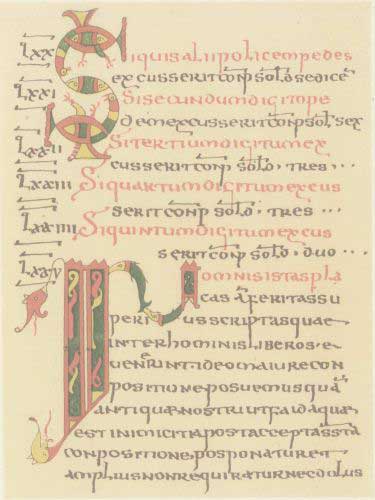 LXX Si quis alii police pedes
excusserit conp sold sedice
LXXI Si secundum digito pe
dem excusserit conp sol sex
LXXII Si tertium digitum ex
cusserit conp sold · tres ···
LXXIII Si quartum digitum excus
serit conp sold · tres ···
LXXIIII Si quintum digitum excus
serit conp sold · duo ···
LXXV In omnis istas pla
cas a feritas su
perius scriptas quae
inter hominis liberos e
uenerint · ideo maiore con
positione posuemus qua
antiquae nostri ut faida quae
est inimicitia post accepta ssta
conpositione posponatur et
amplius non requiratur nec dolus